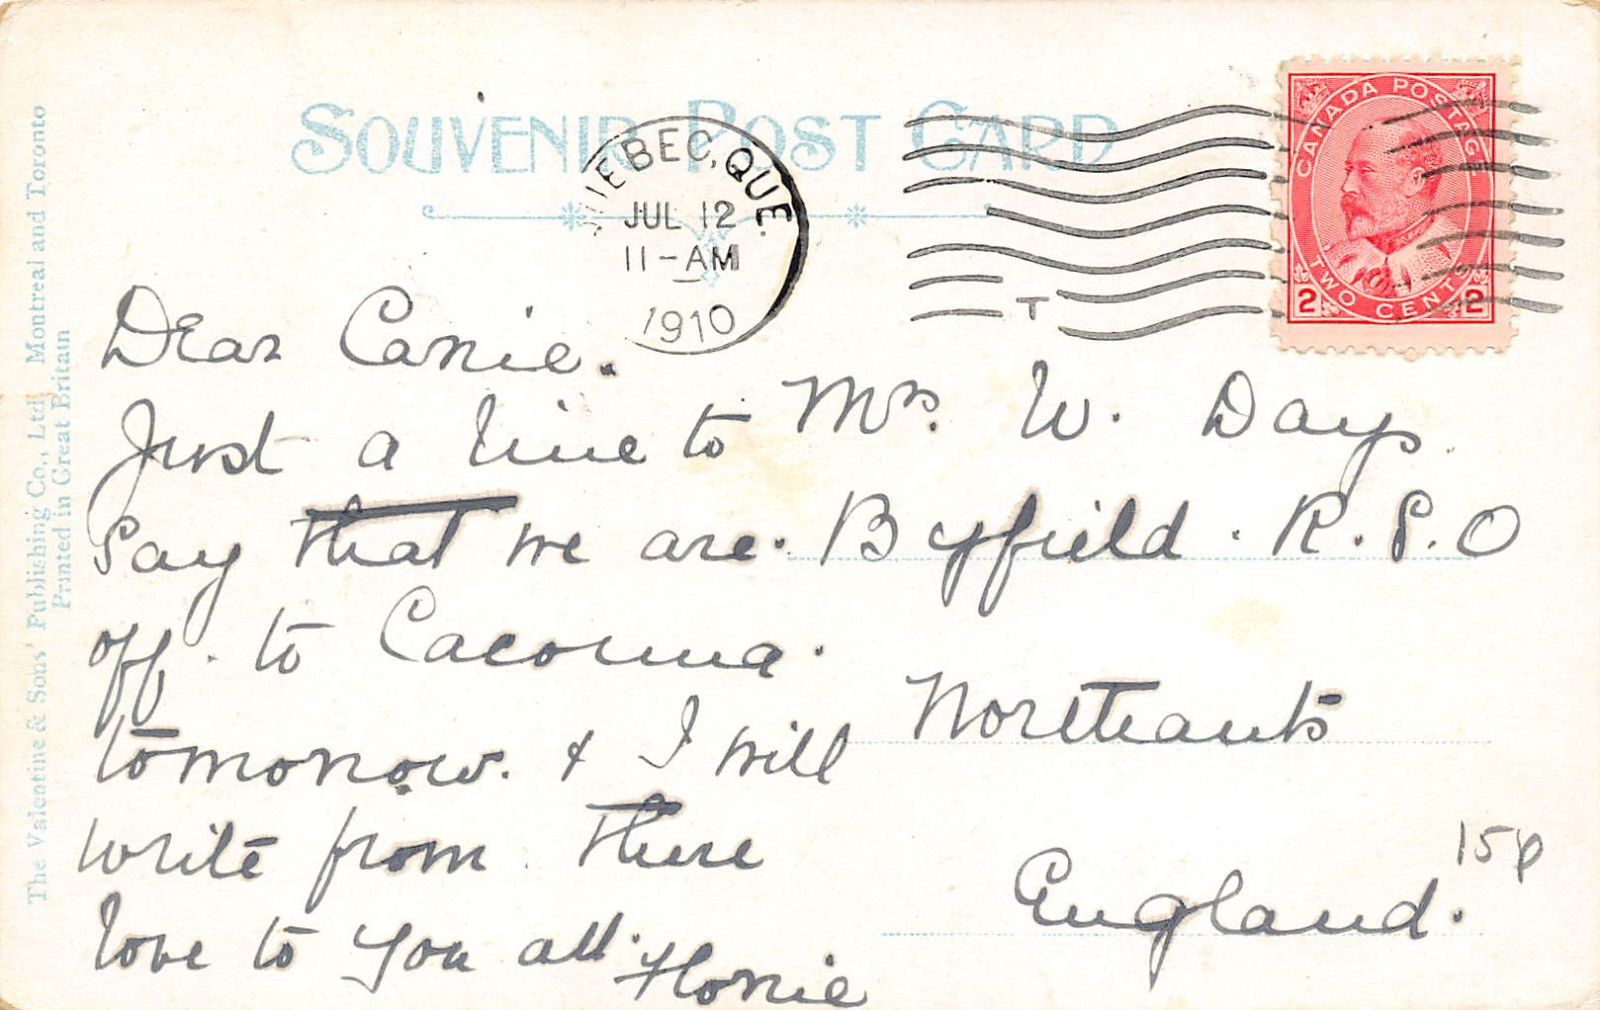 SOUVENIR POST CARD
QUEBEC, QUE.
JUL 12
11-AM
1910
T
CANADA POSTAGE
TWO CENTS
2 2
The Valentine & Sons' Publishing Co., Ltd. Montreal and Toronto
Printed in Great Britain
Dear Carrie.
Just a line to
say that we are.
off. to Cacouna.
tomorrow. & I will
write from there
love to you all.
Florrie
Mrs. W. Days.
Byfield. R.S.O
Northants
England.
15p